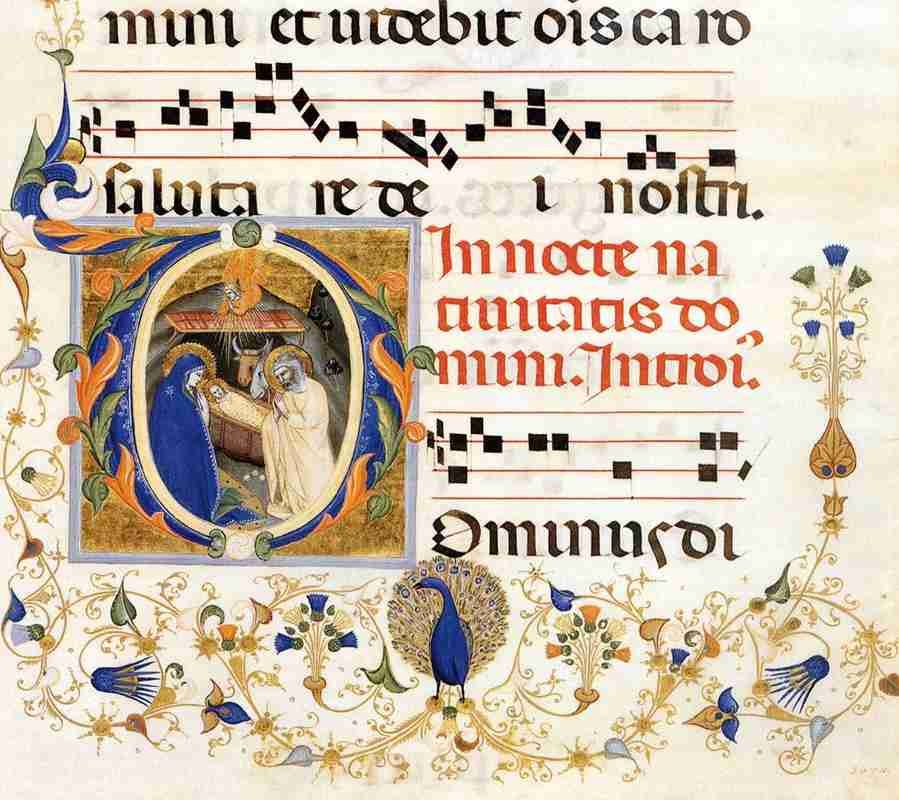 mini et uidebit oīs caro
saluta re de i nostri.
In nocte na
tiuitatis do
mini. Introi᷒.
Ominus di